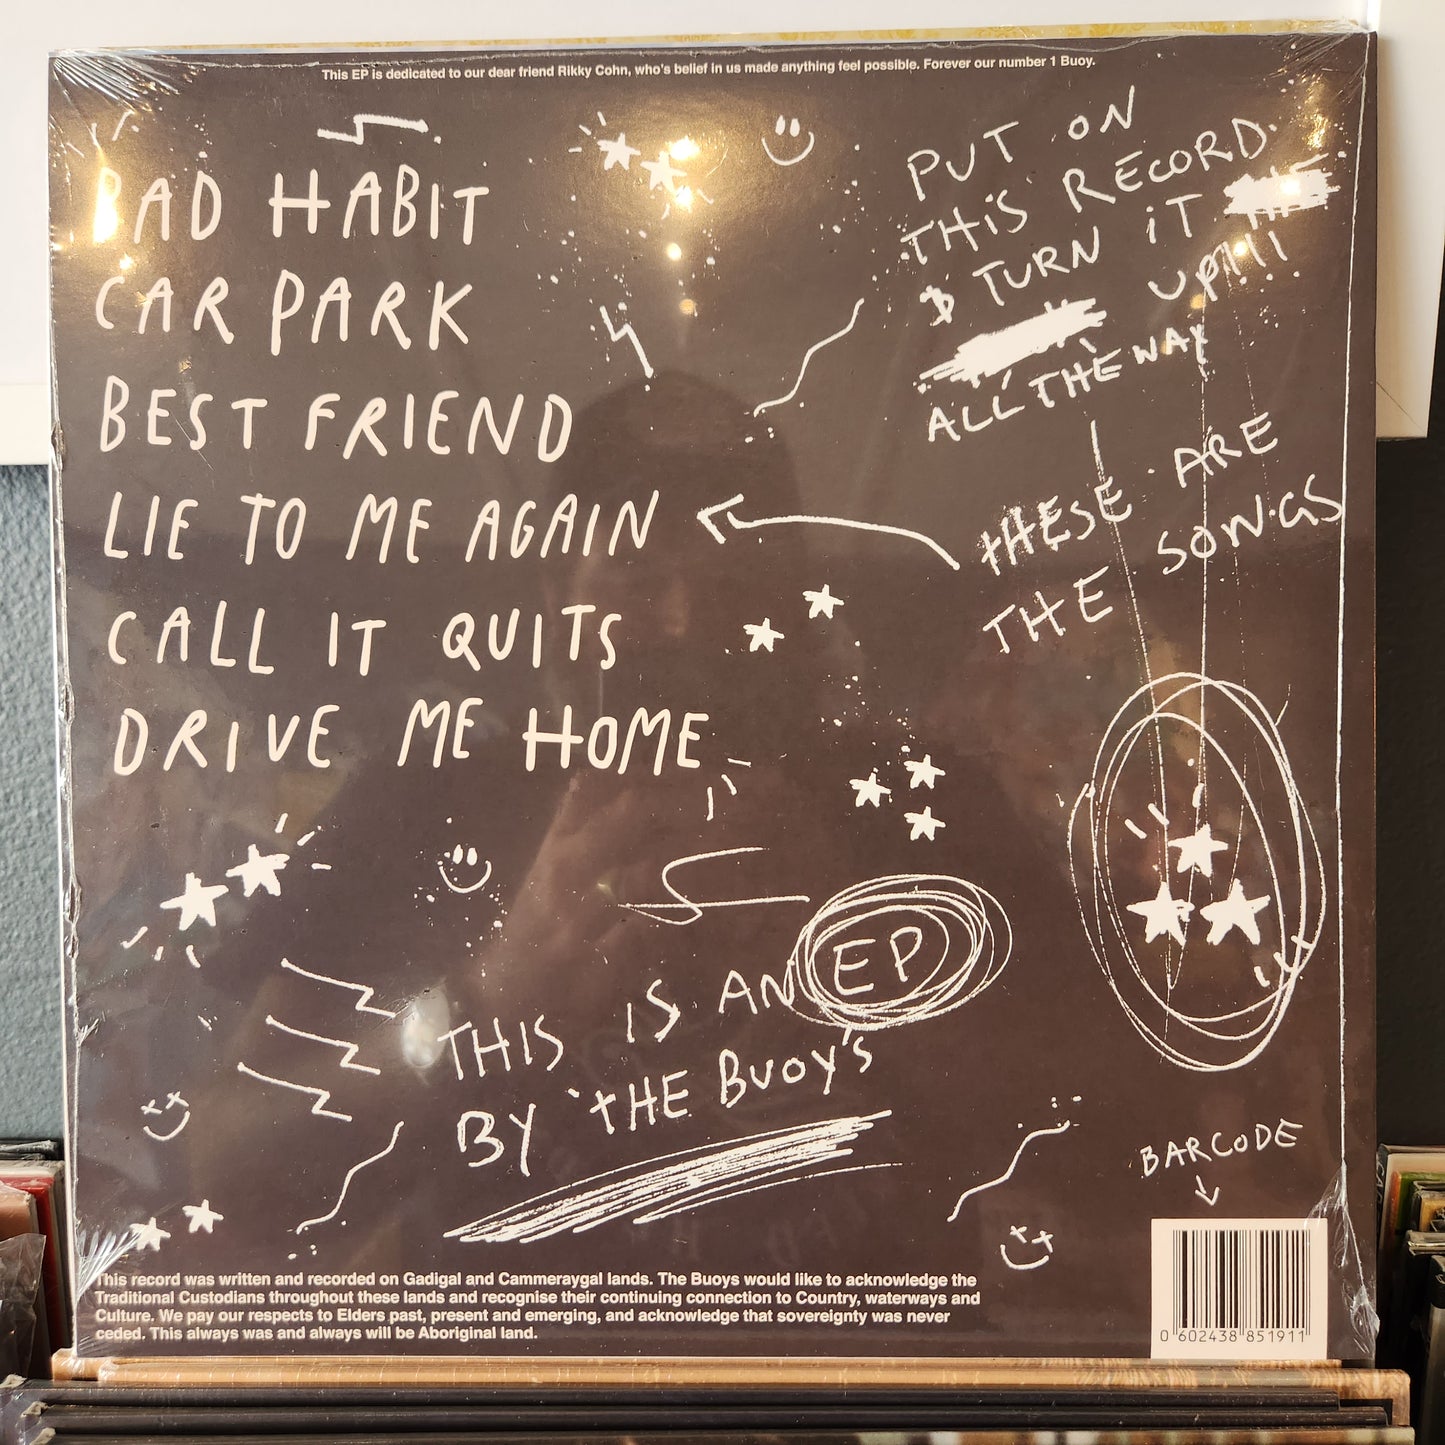 This EP is dedicated to our dear friend Rikky Cohn, who's belief in us made anything feel possible. Forever our number 1 Buoy.
BAD HABIT
CAR PARK
BEST FRIEND
LIE TO ME AGAIN
CALL IT QUITS
DRIVE ME HOME
PUT ON
THIS RECORD
& TURN IT
UP!!!
ALL THE WAY
THESE ARE
THE SONGS
THIS IS AN EP
BY THE BUOY'S
BARCODE
This record was written and recorded on Gadigal and Cammeraygal lands. The Buoys would like to acknowledge the
Traditional Custodians throughout these lands and recognise their continuing connection to Country, waterways and
Culture. We pay our respects to Elders past, present and emerging, and acknowledge that sovereignty was never
ceded. This always was and always will be Aboriginal land.
0 602438 851911